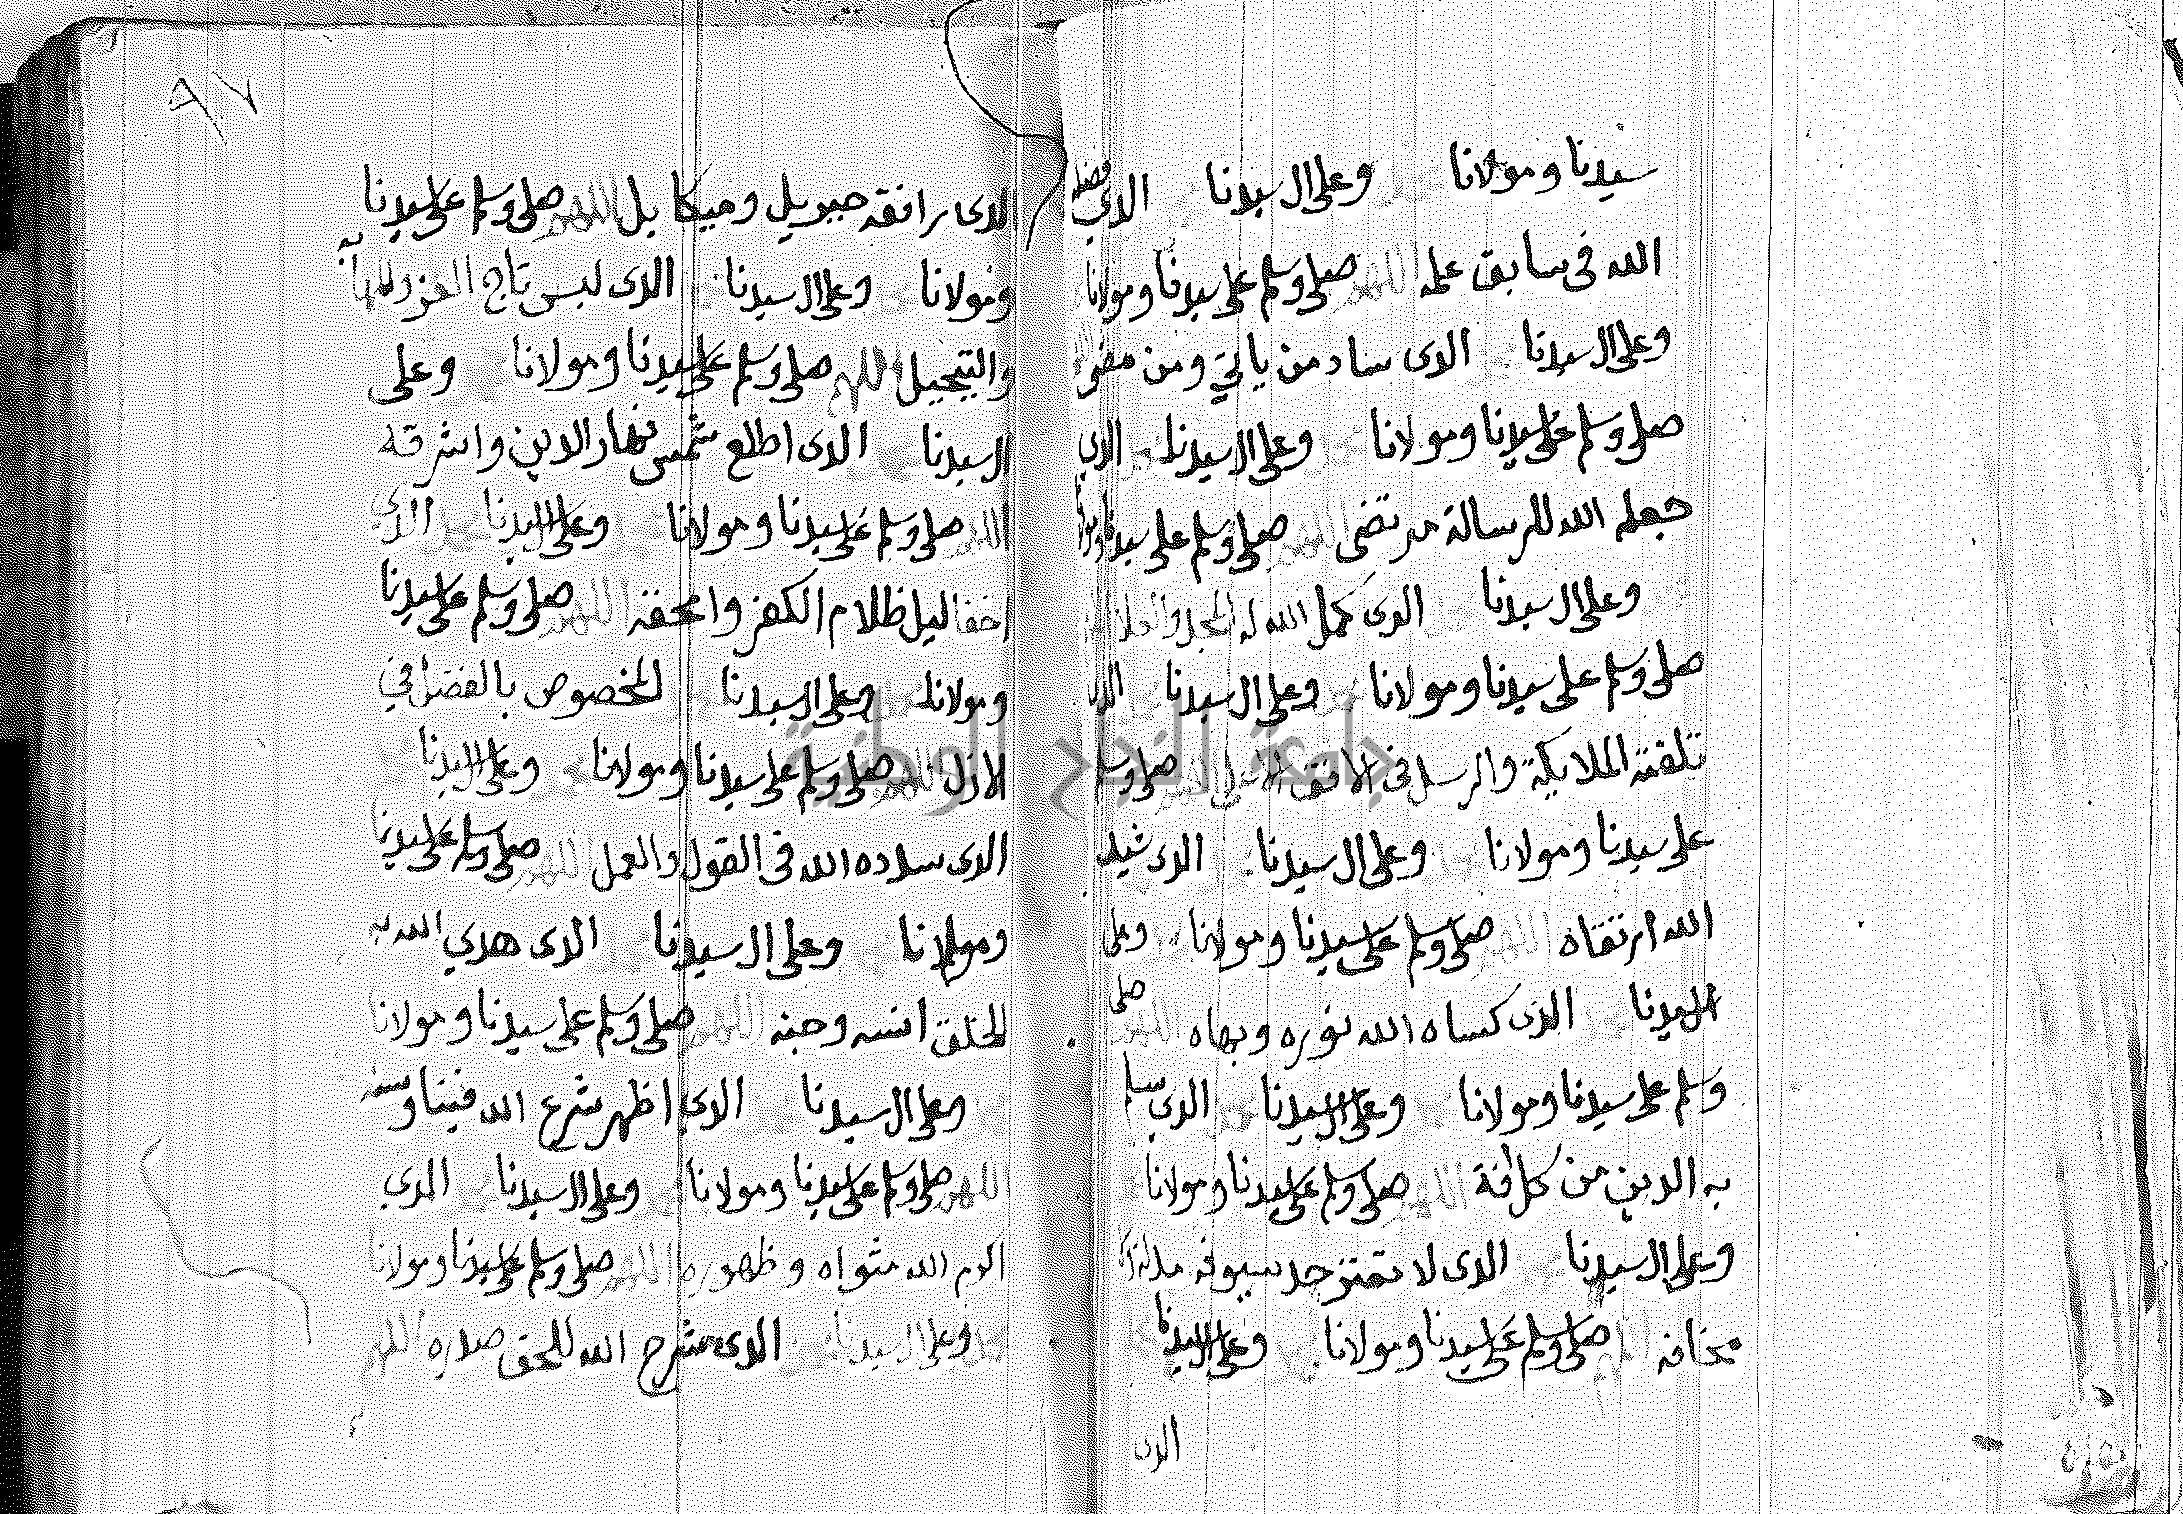 سيدنا ومولانا وعلى ال سيدنا الذي فضله
الله في سابق علمه اللهم صلى وسلم على سيدنا ومولانا
وعلى ال سيدنا الدى ساد من ياتي ومن مضى
صلى وسلم على سيدنا ومولانا وعلى ال سيدنا الذي
جعله الله للرسالة مرتضى اللهم صلى وسلم على سيدنا ومولانا
وعلى ال سيدنا الدى كمل الله له
صلى وسلم على سيدنا ومولانا وعلى ال سيدنا الدى
تلقته الملايكة والرسل فى الافق الاعلى صلى وسلم
على سيدنا ومولانا وعلى ال سيدنا الدى شيد
الله ارتقاه اللهم صلى وسلم على سيدنا ومولانا وعلى
ال سيدنا الذى كساه الله نوره وبهاه اللهم صلى
وسلم على سيدنا ومولانا وعلى ال سيدنا الذي سلم
به الدين من كل افة اللهم صلى وسلم على سيدنا ومولانا
وعلى ال سيدنا الدى لا تفتر حد سيوفه
مخافه صلى وسلم على سيدنا ومولانا وعلى ال سيدنا
الدى
٨٧
الدى رافقه جبريل وميكاييل اللهم صلى وسلم على سيدنا
ومولانا وعلى ال سيدنا الدى لبس تاج العز
والتبجيل اللهم صلى وسلم على سيدنا ومولانا وعلى
ال سيدنا الدى اطلع شمس نهار الدين واشرقه
اللهم صلى وسلم على سيدنا ومولانا وعلى ال سيدنا الذي
اخفا ليل ظلام الكفر وامحقه اللهم صلى وسلم على سيدنا
ومولانا وعلى ال سيدنا المخصوص بالفضل في
الازل اللهم صلى وسلم على سيدنا ومولانا وعلى ال سيدنا
الدى سدده الله فى القول والعمل اللهم صلى وسلم على سيدنا
ومولانا وعلى ال سيدنا الدى هدي الله به
الخلق انسه وجنه اللهم صلى وسلم على سيدنا ومولانا
وعلى ال سيدنا الدي اظهر شرع الله فينا وسنه
اللهم صلى وسلم على سيدنا ومولانا وعلى ال سيدنا الذي
اكرم الله مثواه وظهوره اللهم صلى وسلم على سيدنا ومولانا
وعلى ال سيدنا الدى شرح الله للحق صدره اللهم
جامعة النجاح الوطنية